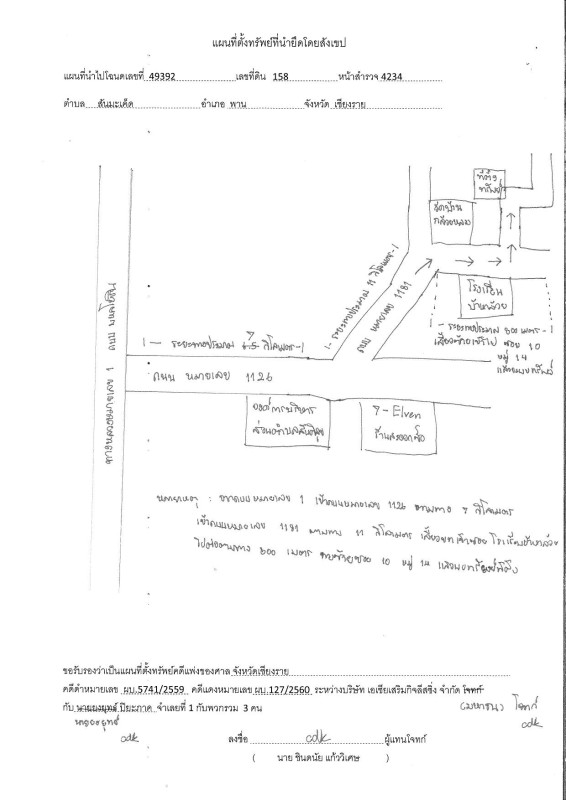 แผนที่ตั้งทรัพย์ที่นำยึดโดยสังเขป
แผนที่นำไปโฉนดเลขที่ 49392 เลขที่ดิน 158 หน้าสำรวจ 4234
ตำบล สันมะเค็ด อำเภอ พาน จังหวัด เชียงราย
ที่ตั้ง
ทรัพย์
โรงเรียน
บ้านกล้วย
ทางหลวงหมายเลข 1 ถนน พหลโยธิน
1- ระยะทางประมาณ 11 กิโลเมตร -1
ถนน หมายเลข 1181
1- ระยะทางประมาณ 600 เมตร -1
เลี้ยวซ้ายเข้าไป ซอย 10
หมู่ 14
1- ระยะทางประมาณ กิโลเมตร -1
ถนน หมายเลข 1126
องค์การบริหาร
7 - Elven
หมายเหตุ : จากถนน หมายเลข 1 เข้าถนนหมายเลข 1126 ตามทาง 7 กิโลเมตร
เข้าถนนหมายเลข 1181 ตามทาง 11 กิโลเมตร เลี้ยวขวาเข้าซอย
600 เมตร ซอย 10 หมู่ 14
ขอรับรองว่าเป็นแผนที่ตั้งทรัพย์คดีแพ่งของศาล จังหวัดเชียงราย
คดีดำหมายเลข ผบ.5741/2559 คดีแดงหมายเลข ผบ.127/2560 ระหว่างบริษัท เอเซียเสริมกิจลีสซิ่ง จำกัด โจทก์
(มหาชน) โจทก์
กับ นายยงยุทธ์ ปิยะภาค จำเลยที่ 1 กับพวกรวม 3 คน
นายยงยุทธ์
cdk
cdk
ลงชื่อ cdk ผู้แทนโจทก์
( นาย ชินดนัย แก้ววิเศษ )